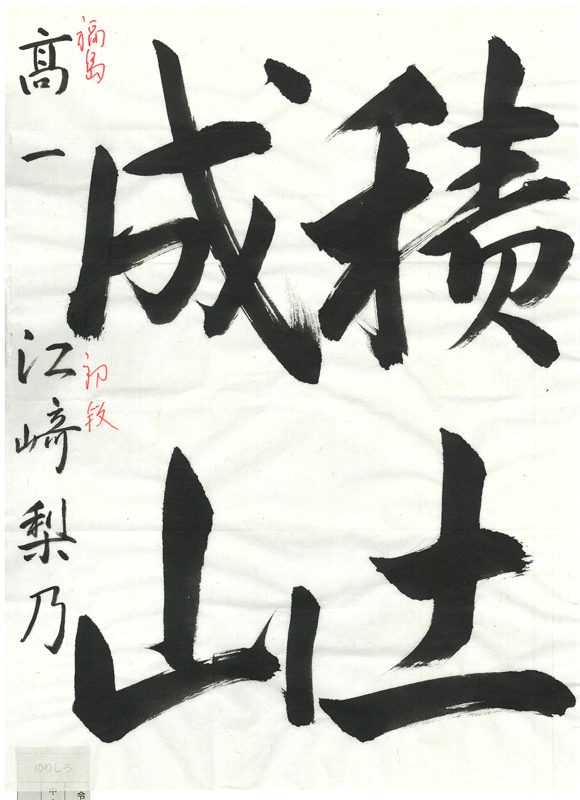 積土
成山
福島
初段
高一 江﨑梨乃
のりしろ